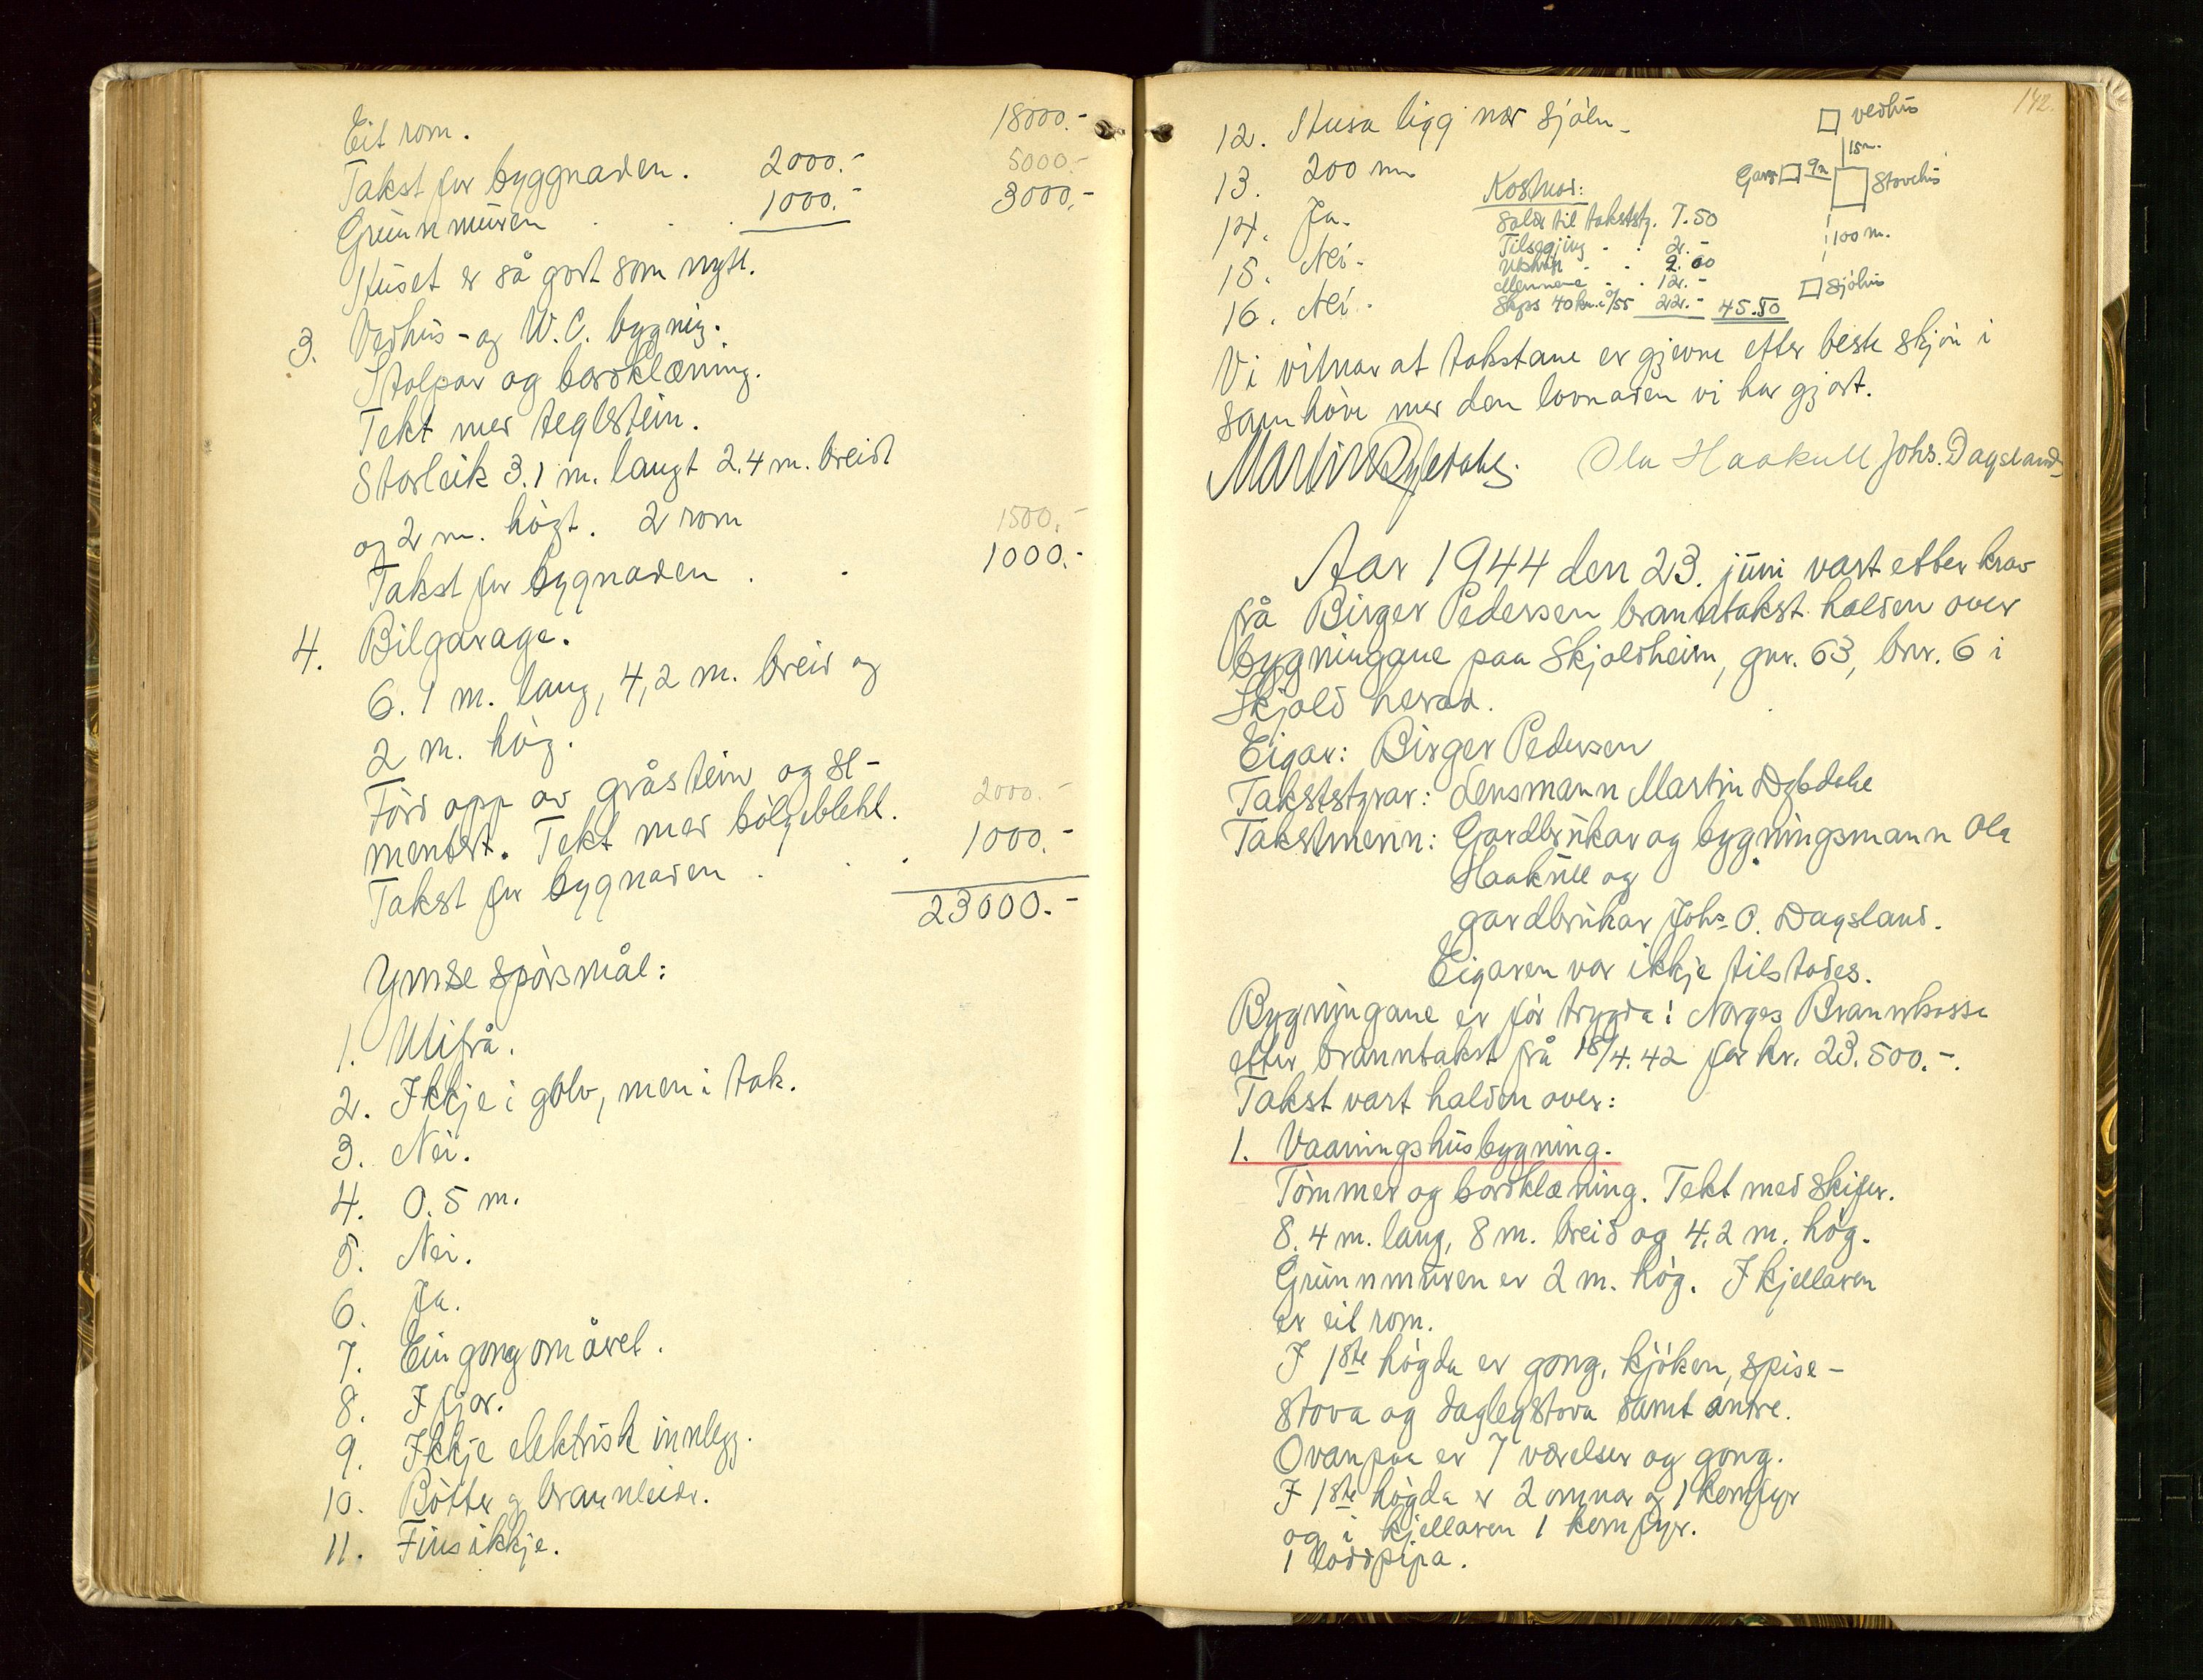 Eit rom. 18000.-
Takst for byggnaden. 2000.- 5000.-
Grunnmuren . . . 1000.- 3000.-
Huset er så godt som nytt.
3. Vedhus- og W.C. bygnig.
Stolpar og bordklæning.
Tekt med teglstein.
Storleik 3.1 m. langt 2.4 m. breidt
og 2 m. högt. 2 rom 1500.-
Takst for bygnaden . . 1000.-
4. Bilgarage.
6.1 m. lang, 4,2 m. breid og
2 m. hög.
Förd opp av gråstein og se-
mentst. Tekt med bölgeblekk. 2000.-
Takst for bygnaden . . . 1000.-
23000.-
Ymse spörsmål:
1. Utifrå.
2. Ikkje i golv, men i tak.
3. Nei.
4. 0.5 m.
5. Nei.
6. Ja.
7. Ein gong om året.
8. I fjor.
9. Ikkje elektrisk innlegg.
10. Bötter og brannleider.
11. Fins ikkje.
142.
12. Husa ligg nær sjöen.
13. 200 m.
14. Ja.
15. Nei.
16. Nei.
Kostnad:
Solds til takststy. 7.50
Tilsegjing . . 2.-
Utskrift . . 2.00
Mennene . . 12.-
Skyss 40 km. a 0/55 22.- 45.50
vedhus
15 m.
Gara 9 m Stovehus
100 m.
Sjöhus
Vi vitnar at takstane er gjevne etter beste skjön i
samhöve med den lovnaden vi har gjort.
Martin Dybdahl. Ola Haakull Johs. Dagsland
Aar 1944 den 23. juni vart etter krav
frå Birger Pedersen branntakst halden over
bygningane paa Skjoldheim, gnr. 63, bnr. 6 i
Skjold herad.
Eigar: Birger Pedersen
Takststyrar: Lensmann Martin Dybdahl
Takstmenn: Gardbrukar og bygningsmann Ola
Haakull og
gardbrukar Johs O. Dagsland.
Eigaren var ikkje tilstades.
Bygningane er för trygda i Norges Brannkasse
etter branntakst frå 18/4.42 for kr. 23.500.-.
Takst vart halden over:
1. Vaaningshusbygning.
Tömmer og bordklæning. Tekt med skifer.
8.4 m. lang, 8 m. breid og 4.2 m. hög.
Grunnmuren er 2 m. hög. I kjellaren
er eit rom.
I 1ste högda er gong, kjöken, spise-
stova og daglegstova samt andre.
Ovanpaa er 7 værelser og gong.
I 1ste högda er 2 omnar og 1 komfyr
og i kjellaren 1 komfyr.
1 loddpipa.